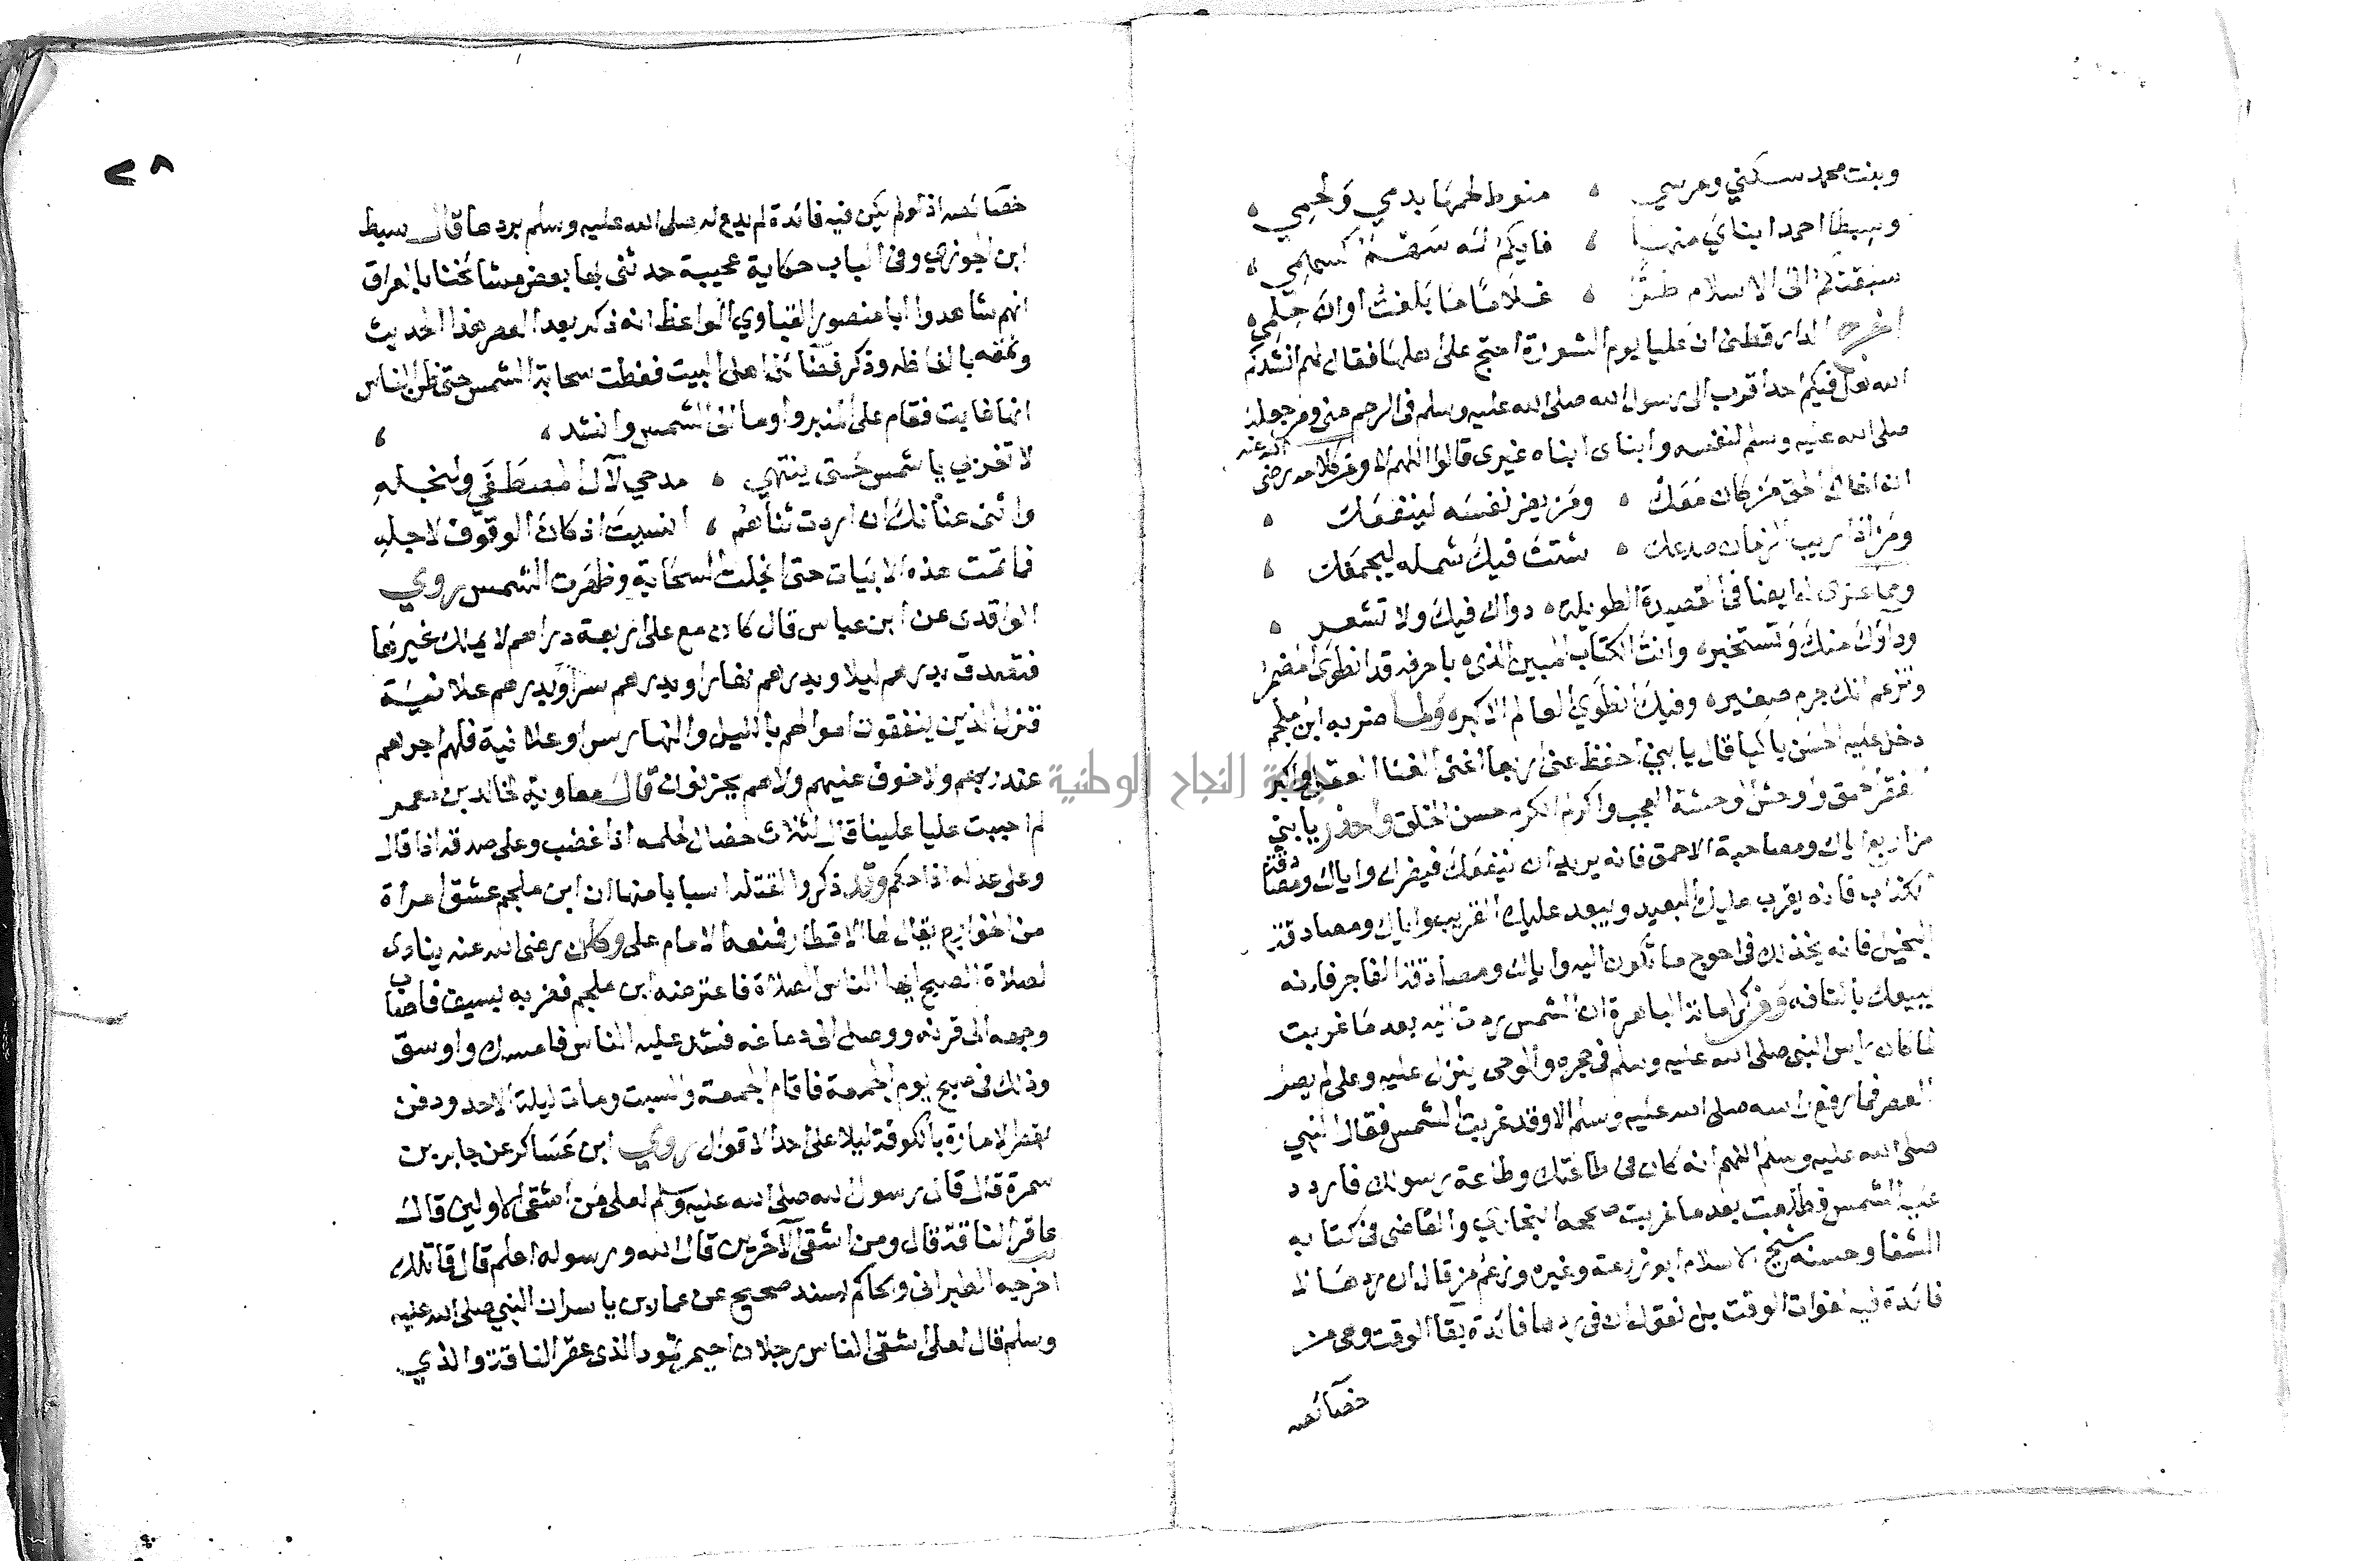 وبنت محمد سكني وعرسي ، منوط لحمها بدمي ولحمي ،
وسبطا احمد ابناي منها ، فايكم له سهم كسهمي ،
سبقتكم الى الاسلام طرا ، غلاما ما بلغت اوان حلمي ،
اخرج الدارقطني ان عليا يوم الشورى احتج على اهلها فقال لهم انشدكم
الله هل فيكم احد اقرب الى رسول الله صلى الله عليه وسلم في الرحم مني ومن جعله
صلى الله عليه وسلم لنفسه وابناى ابناه غيرى قالوا اللهم لا ومن كلامه رضى الله عنه
ان اخاك الحق من كان معك ، ومن يضر نفسه لينفعك ،
ومن اذا ريب الزمان صدعك ، شتت فيك شمله ليجمعك ،
ومما عزى له ايضا في القصيدة الطويلة ، دواك فيك ولا تشعر ،
وداؤك منك وتستخبر ، وانت الكتاب المبين الذى ، باحرفه قد انطوى المضمر
وتزعم انك جرم صغير ، وفيك انطوى العالم الاكبر ، ولما ضربه ابن ملجم
دخل عليه الحسن باكيا قال يا بني احفظ عنى اربعا اغنى الغنا العقل واكبر
الفقر الحمق واوحش الوحشة العجب واكرم الكرم حسن الخلق واحذر يا بني
من اربع اياك ومصاحبة الاحمق فانه يريد ان ينفعك فيضرك واياك ومصادقة
الكذاب فانه يقرب عليك البعيد ويبعد عليك القريب واياك ومصادقة
البخيل فانه يخذلك في احوج ما تكون اليه واياك ومصادقة الفاجر فانه
يبيعك بالتافه ومن كراماته الباهرة ان الشمس ردت اليه بعد ما غربت
لما كان راس النبى صلى الله عليه وسلم في حجره والوحى ينزل عليه وعلى لم يصل
العصر فما رفع راسه صلى الله عليه وسلم الا وقد غربت الشمس فقال النبي
صلى الله عليه وسلم اللهم انه كان في طاعتك وطاعة رسولك فاردد
عليه الشمس فطلعت بعد ما غربت صححه الطحاوي والقاضى في كتابه
الشفا وحسنه شيخ الاسلام ابو زرعة وغيره وزعم من قال ان ردها لا
فائدة فيه لفوات الوقت بل نقول ان في ردها فائدة بقا الوقت وهى من
خصائصه
٢٨
خصائصه اذ لو لم يكن فيه فائدة لم يدع له صلى الله عليه وسلم بردها قال سبط
ابن الجوزي وفي الباب حكاية عجيبة حدثنى بها بعض مشائخنا بالعراق
انهم شاهدوا ابا منصور القباوي الواعظ انه ذكر بعد العصر هذا الحديث
ونمقه بالفاظه وذكر فضائل اهل البيت فغطت سحابة الشمس حتى ظن الناس
انها غابت فقام على المنبر واوما الى الشمس وانشد ، ،
لا تغربي يا شمس حتى ينتهي ، مدحي لآل المصطفي ولنجله
واثنى عنانك ان اردت ثناهم ، انسيت اذ كان الوقوف لاجله
فما تمت هذه الابيات حتى انجلت السحابة وظهرت الشمس روي
الواقدى عن ابن عباس قال كان مع على اربعة دراهم لا يملك غيرها
فتصدق بدرهم ليلا وبدرهم نهارا وبدرهم سرا وبدرهم علانية
فنزل الذين ينفقون اموالهم بالليل والنهار سرا وعلانية فلهم اجرهم
عند ربهم ولا خوف عليهم ولا هم يحزنون قال معاوية لخالد بن معمر
لم احببت عليا علينا قال لثلاث خصال لحلمه اذا غضب وعلى صدقه اذا قال
وعلى عدله اذا حكم وقد ذكروا لقتله اسبابا منها ان ابن ملجم عشق امرأة
من الخوارج يقال لها الاقطار فمنعه الامام على وكان رضى الله عنه ينادى
لصلاة الصبح ايها الناس الصلاة فاعترضه ابن ملجم فضربه بسيف فاصاب
وجهه الى قرنه ووصل الى دماغه فشد عليه الناس فامسك واوسق
وذلك في صبح يوم الجمعة فاقام الجمعة والسبت ومات ليلة الاحد ودفن
بقصر الامارة بالكوفة ليلا على احد الاقوال روي ابن عساكر عن جابر بن
سمرة قال قال رسول الله صلى الله عليه وسلم لعلى من اشقى الاولين قال
عاقر الناقة قال ومن اشقى الآخرين قال الله ورسوله اعلم قال قاتلك
اخرجه الطبرانى والحاكم بسند صحيح عن عمار بن ياسر ان النبي صلى الله عليه
وسلم قال لعلى اشقى الناس رجلان احيمر ثمود الذى عقر الناقة والذي
جامعة النجاح الوطنية